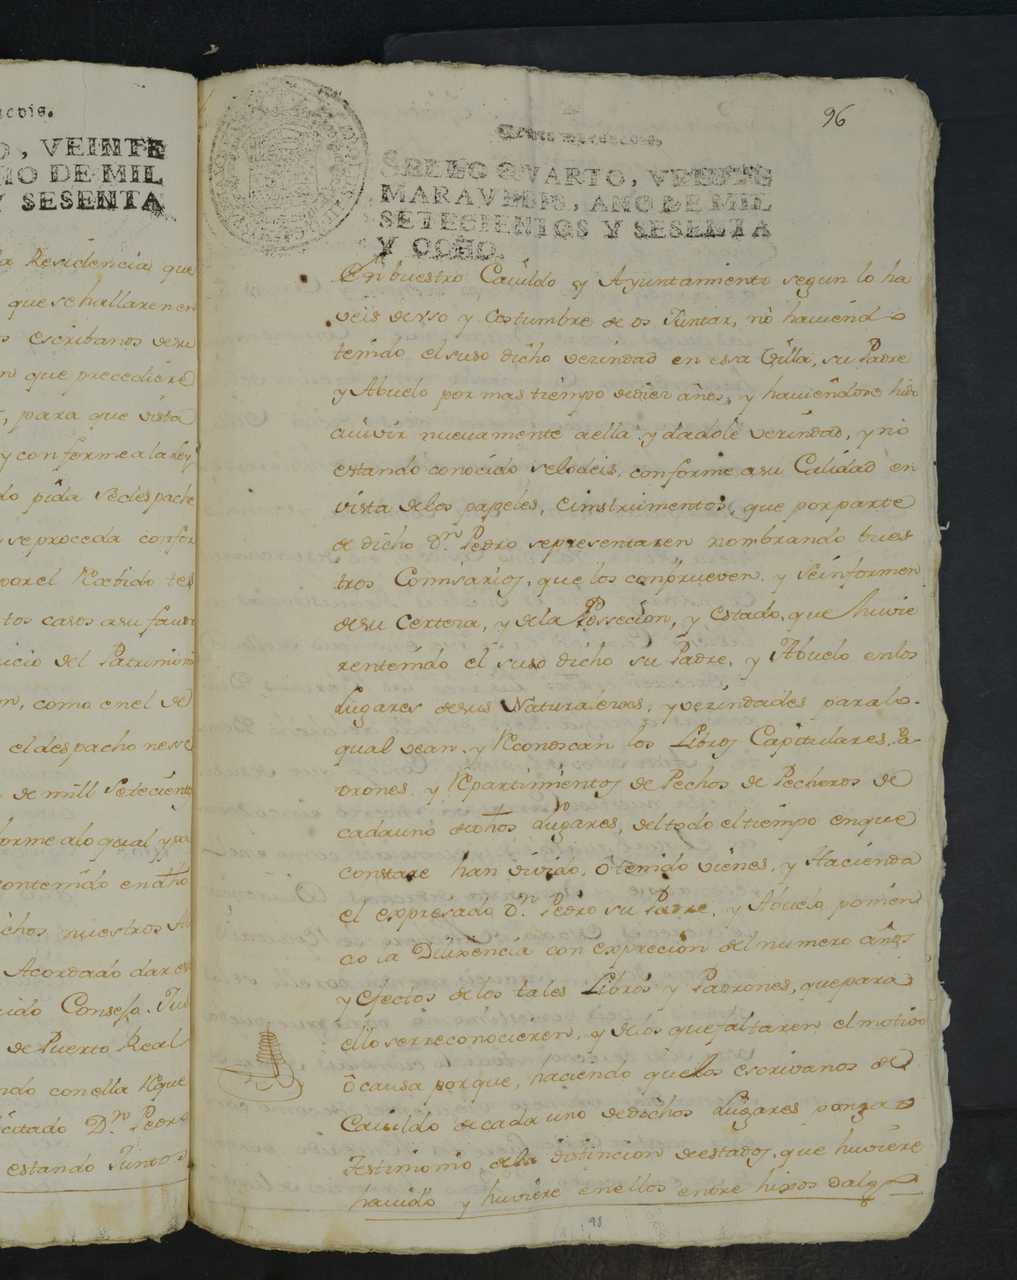 ueois.
O, VEINTE
ÑO DE MIL
Y SESENTA
a Residencia, que
que se hallaren en
s escribanos de su
n que precediere
, para que vista
y conforme a la ley
do pida se despache
y se proceda confor
por el Recibido tes
tos casos a su favor
icio del Patrimoni
n, como en el de
el despacho nese
de mill setecient
orme a lo qual y
contenido en dho
chos nuestros
Acordado dar es
cido Consejo, Jus
de Puerto Real
ndo con ella Reque
citado Dn. Pedro
estando Juntos
96
SELLO QVARTO, VEINTE
MARAVEDIS, AÑO DE MIL
SETECIENTOS Y SESENTA
Y OCHO.
En buestro Cavildo y Ayuntamiento segun lo ha
veis de vso y Costumbre de os Juntar, no haviendo
tenido el suso dicho vezindad en essa Villa, su Padre
y Abuelo por mas tiempo de diez años, y haviendose hido
a vivir nuevamente a ella y dadole vezindad, y no
estando conocido se lo deis, conforme a su Calidad en
vista de los papeles, e instrumentos, que por parte
de dicho Dn. Pedro se presentaren nombrando bues
tros Comisarios, que los conprueven y se informen
de su Certeza, y de la Possecion, y estado, que huvie
ren tenido el suso dicho su Padre, y Abuelo en los
Lugares de sus Naturalezas, y vezindades para lo
qual vean y Reconoscan los Libros Capitulares, Pa
drones, y Repartimientos de Pechos de Pecheros de
cada uno de dhos Lugares, del todo el tiempo en que
constare han vivido, o tenido vienes, y Hacienda
el expresado Dn. Pedro su Padre, y Abuelo, ponien
do la Dilixencia con exprecion del numero años
y efectos de los tales Libros y Padrones, que para
ello se rreconocieren, y de los que faltaren el motivo
o causa porque, haciendo que los escrivanos de
Cavildo de cada uno de dichos Lugares pongan
Testimonio, de la distincion de estados, que huviere
havido y huviere en ellos entre hixos dalgo
98